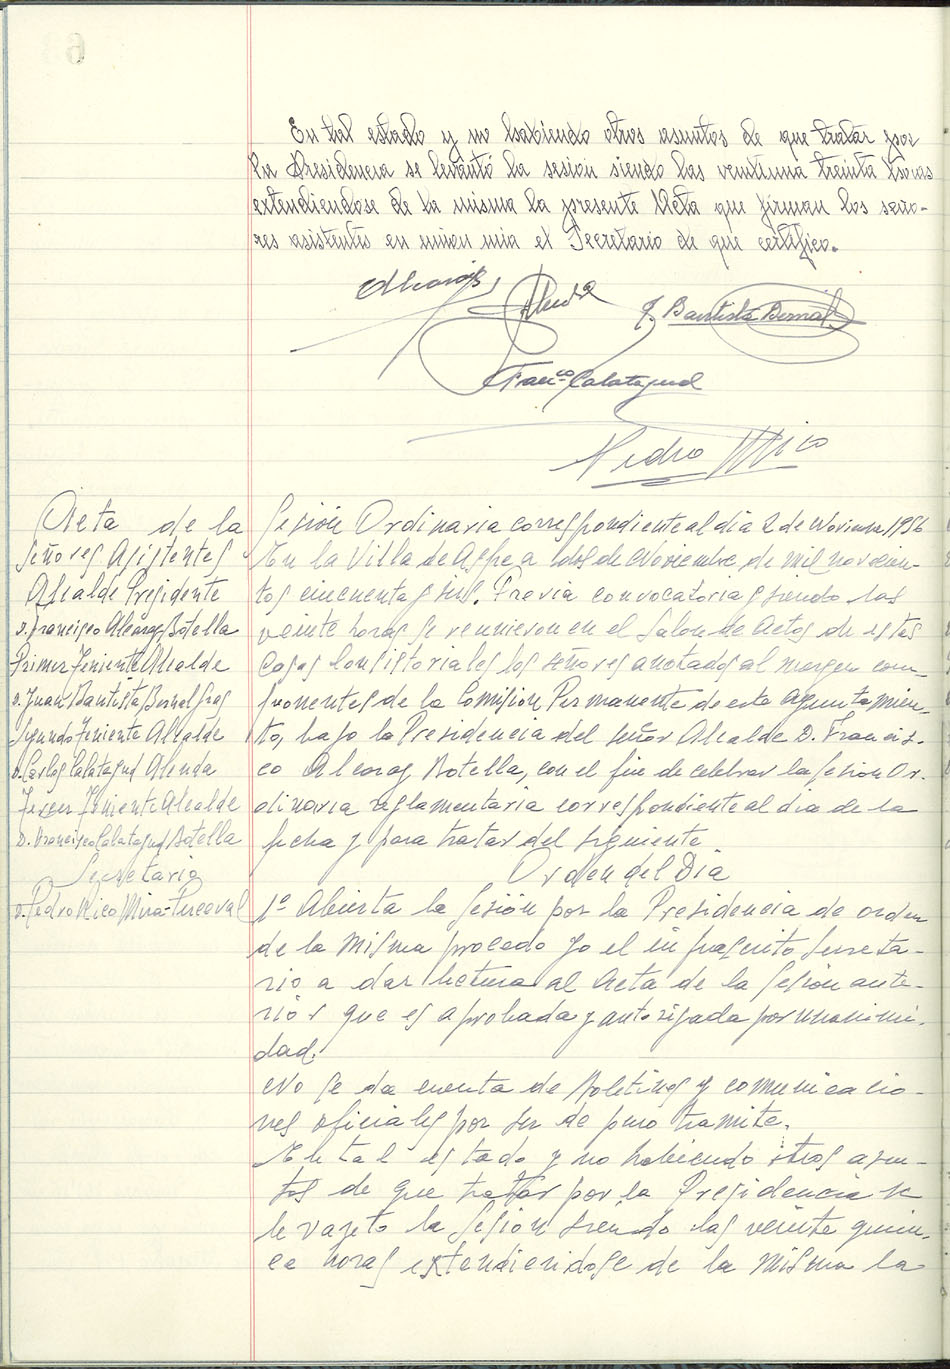 En tal estado y no habiendo otros asuntos de que tratar por
la Presidencia se levantó la sesión siendo las veintiuna treinta horas
extendiendose de la misma la presente Acta que firman los seño-
res asistentes en union mia el Secretario de que certifico.
J. Bautista Bernal
Franco Calatayud
Pedro Mico
Acta de la
Señores Asistentes
Alcalde Presidente
D. Francisco Alcaraz Botella
Primer Teniente Alcalde
D. Juan Bautista Bernal
Segundo Teniente Alcalde
D. Carlos Calatayud Alenda
Tercer Teniente Alcalde
D. Francisco Calatayud Botella
Secretario
D. Pedro Mico Mira-Perceval
Sesión Ordinaria correspondiente al dia 2 de Noviembre 1956
En la Villa de Aspe a dos de Noviembre, de mil novecien-
tos cincuenta y seis. Previa convocatoria y siendo las
veinte horas se reunieron en el Salon de Actos de estas
Casas Consistoriales los señores anotados al margen com-
ponentes de la Comisión Permanente de este Ayuntamien-
to, bajo la Presidencia del señor Alcalde D. Francis-
co Alcaraz Botella, con el fin de celebrar la Sesión Or-
dinaria reglamentaria correspondiente al dia de la
fecha y para tratar del siguiente
Orden del Dia
1º Abierta la Sesión por la Presidencia de orden
de la misma procedo yo el infrascrito Secreta-
rio a dar lectura al Acta de la Sesión ante-
riór que es aprobada y autorizada por unanimi-
dad.
No se da cuenta de Boletines y comunicacio-
nes oficiales por ser de puro tramite.
En tal estado y no habiendo otros asun-
tos de que tratar por la Presidencia se
levanto la Sesión siendo las veinte quin-
ce horas extendiendose de la misma la